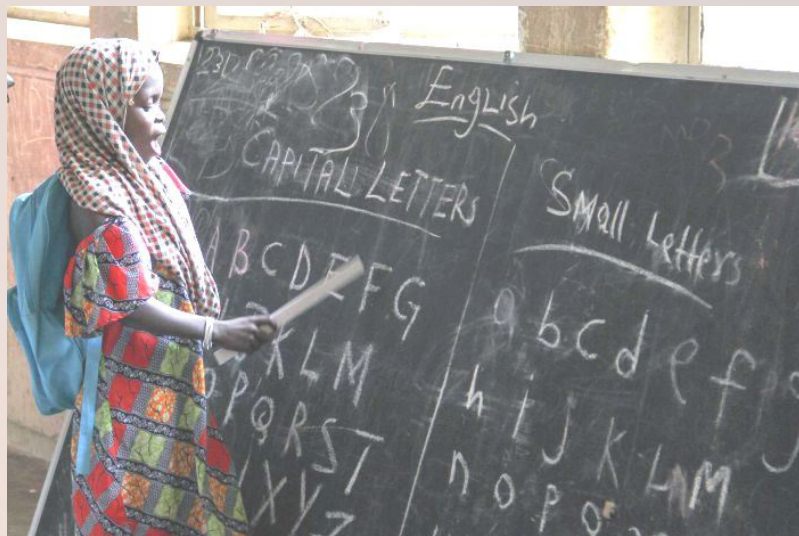 English
CAPITAL LETTERS
A B C D E F G
K L M
P Q R S T
X Y Z
Small Letters
a b c d e f g
h i j K L M
n o p